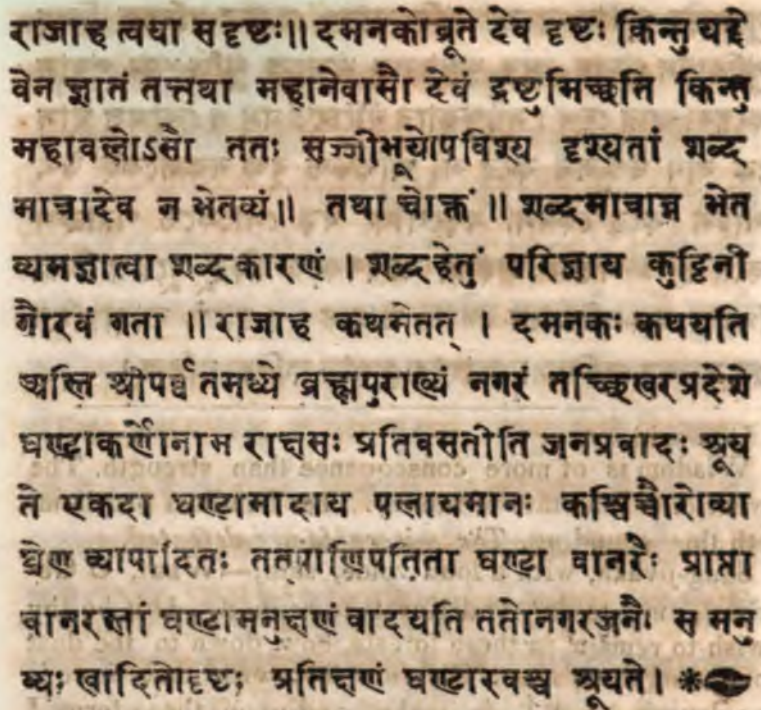 राजाह त्वया स दृष्टः॥ दमनकोब्रूते देव दृष्टः किन्तु यद्दे
वेन ज्ञातं तत्तथा महानेवासौ देवं द्रष्टुमिच्छति किन्तु
महावलोऽसौ ततः सज्जीभूयोपविश्य दृश्यतां शब्द
मात्रादेव न भेतव्यं॥ तथा चोक्तं ॥ शब्दमात्रान्न भेत
व्यमज्ञात्वा शब्दकारणं । शब्दहेतुं परिज्ञाय कुट्टिनी
गौरवं गता ॥ राजाह कथमेतत् । दमनकः कथयति
अस्ति श्रीपर्व्वतमध्ये ब्रह्मपुराख्यं नगरं तच्छिखरप्रदेशे
घण्टाकर्णोनाम राक्षसः प्रतिवसतीति जनप्रवादः श्रूय
ते एकदा घण्टामादाय पलायमानः कश्चिच्चौरोव्या
घ्रेण व्यापादितः तत्पाणिपतिता घण्टा वानरैः प्राप्ता
वानरास्तां घण्टामनुक्षणं वादयति ततोनगरजनैः स मनु
ष्यः खादितोदृष्टः प्रतिक्षणं घण्टारवश्च श्रूयते। *